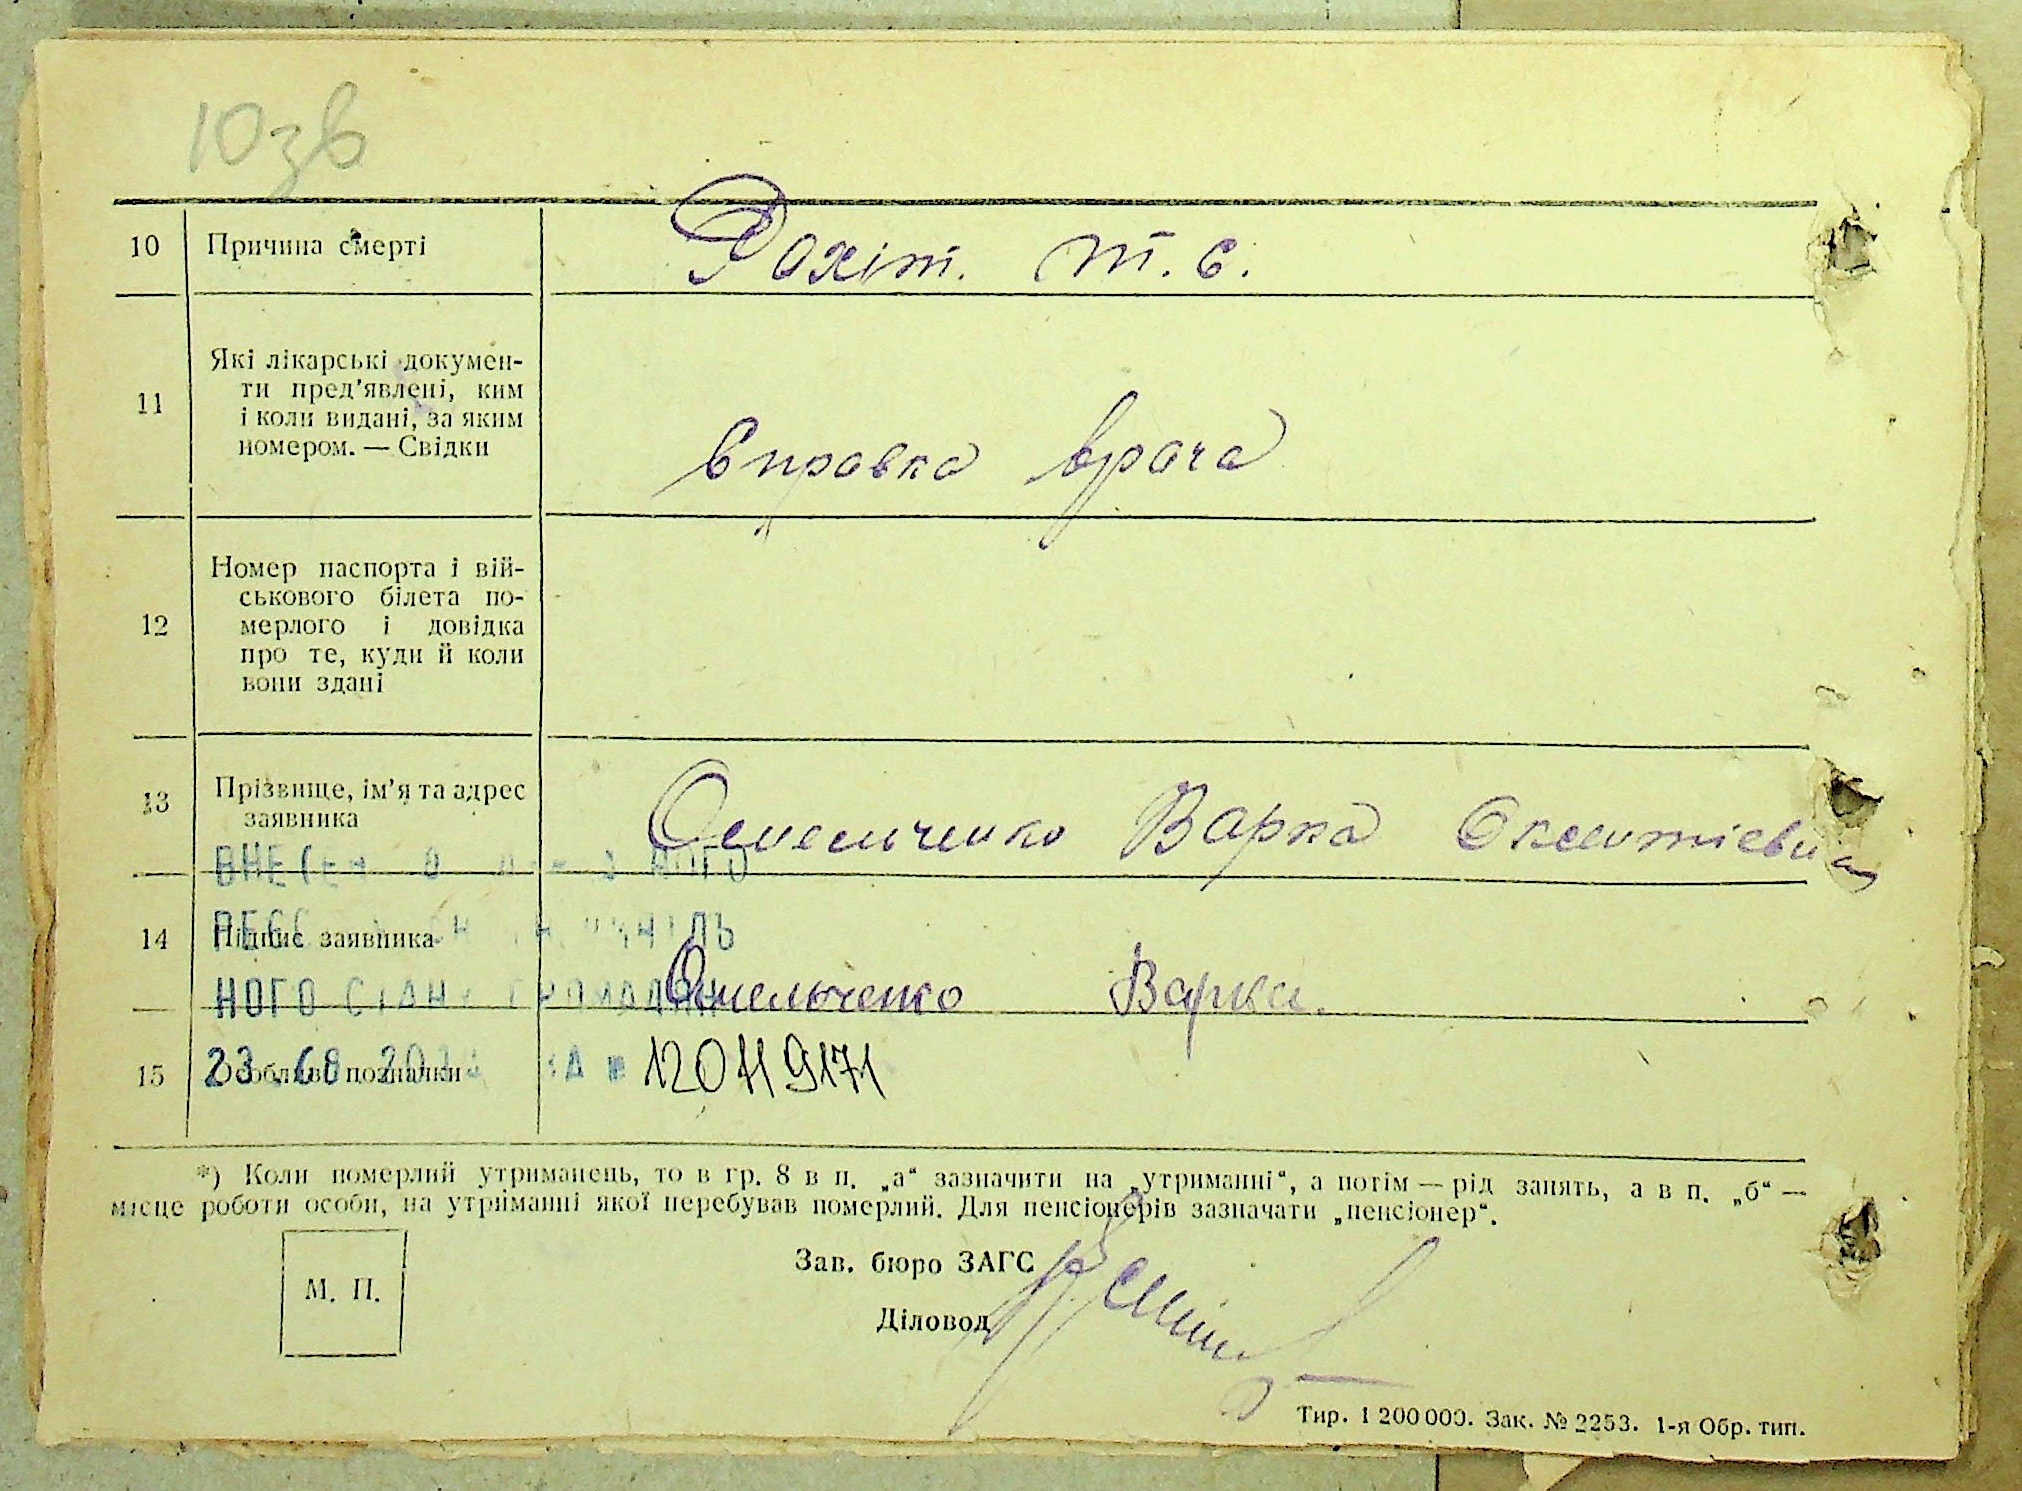 10зв
10 Причина смерті Рахіт. т. с.
11 Які лікарські докумен-
ти пред'явлені, ким
і коли видані, за яким
номером. — Свідки
Справка врача
12 Номер паспорта і вій-
ськового білета по-
мерлого і довідка
про те, куди й коли
вони здані
13 Прізвище, ім'я та адрес
заявника
Омельченко Варка
14 Підпис заявника
Омельченко Варка.
НОГО СТАНУ ГРОМАДЯН
15 Особливі позначки
12019171
*) Коли померлий утриманець, то в гр. 8 в п. „а“ зазначити на „утриманні“, а потім — рід занять, а в п. „б“ —
місце роботи особи, на утриманні якої перебував померлий. Для пенсіонерів зазначати „пенсіонер“.
М. П.
Зав. бюро ЗАГС
Діловод
Тир. 1 200 000. Зак. № 2253. 1-я Обр. тип.